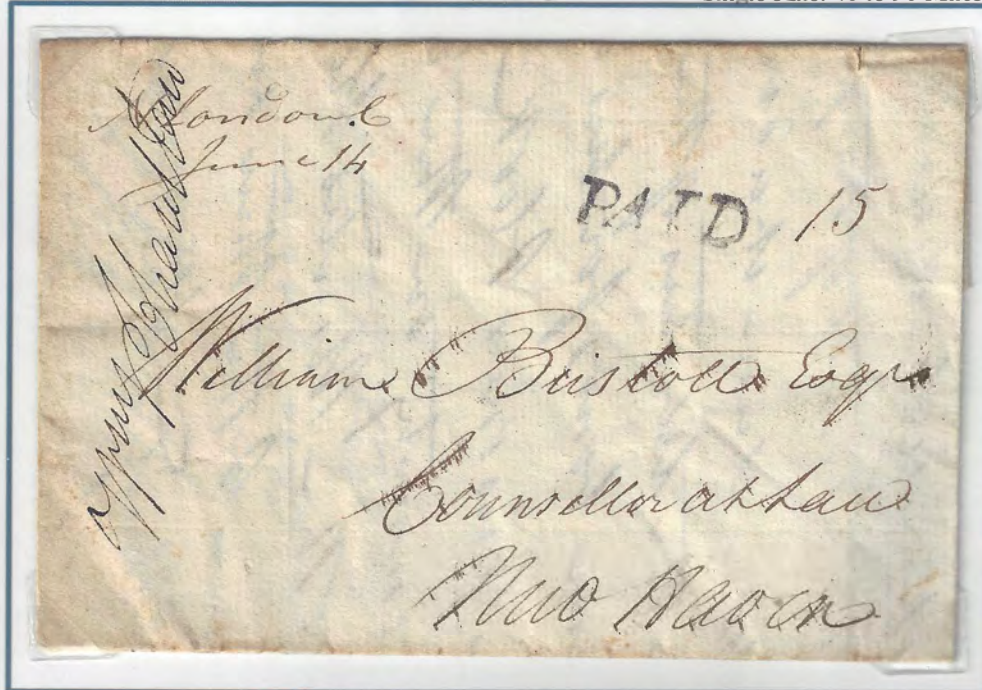 N London C
June 14
PAID 15
William Bristoll Esqr
Counsellor at Law
New Haven